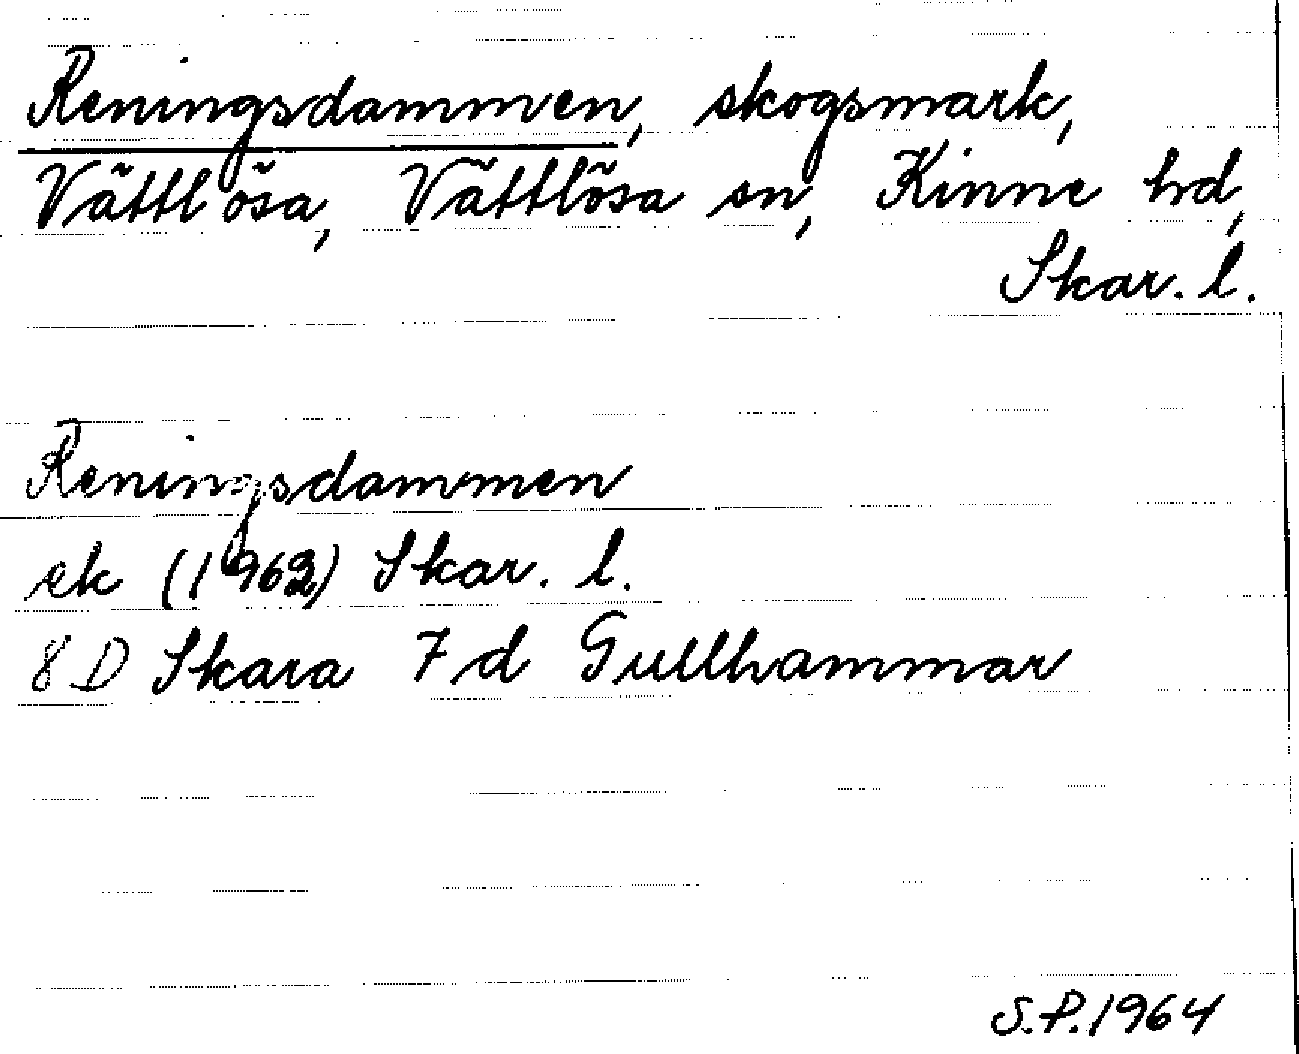 Reningsdammen, skogsmark,
Vättlösa, Vättlösa sn, Kinne hd,
Skar. l.
Reningsdammen
ek (1962) Skar. l.
8 D Skara 7 d Gullhammar
S.P. 1964